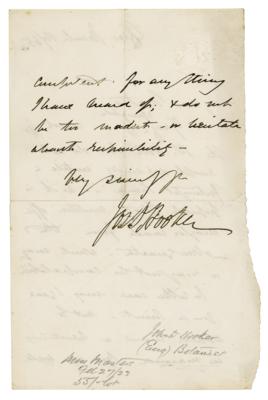 competent for any thing
I have heard of, & do not
be too modest – or hesitate
about responsibility –
Very sincerely yrs
Jos D Hooker
John D Hooker
(Eng) Botanist
Feb 27/23
55/- lot